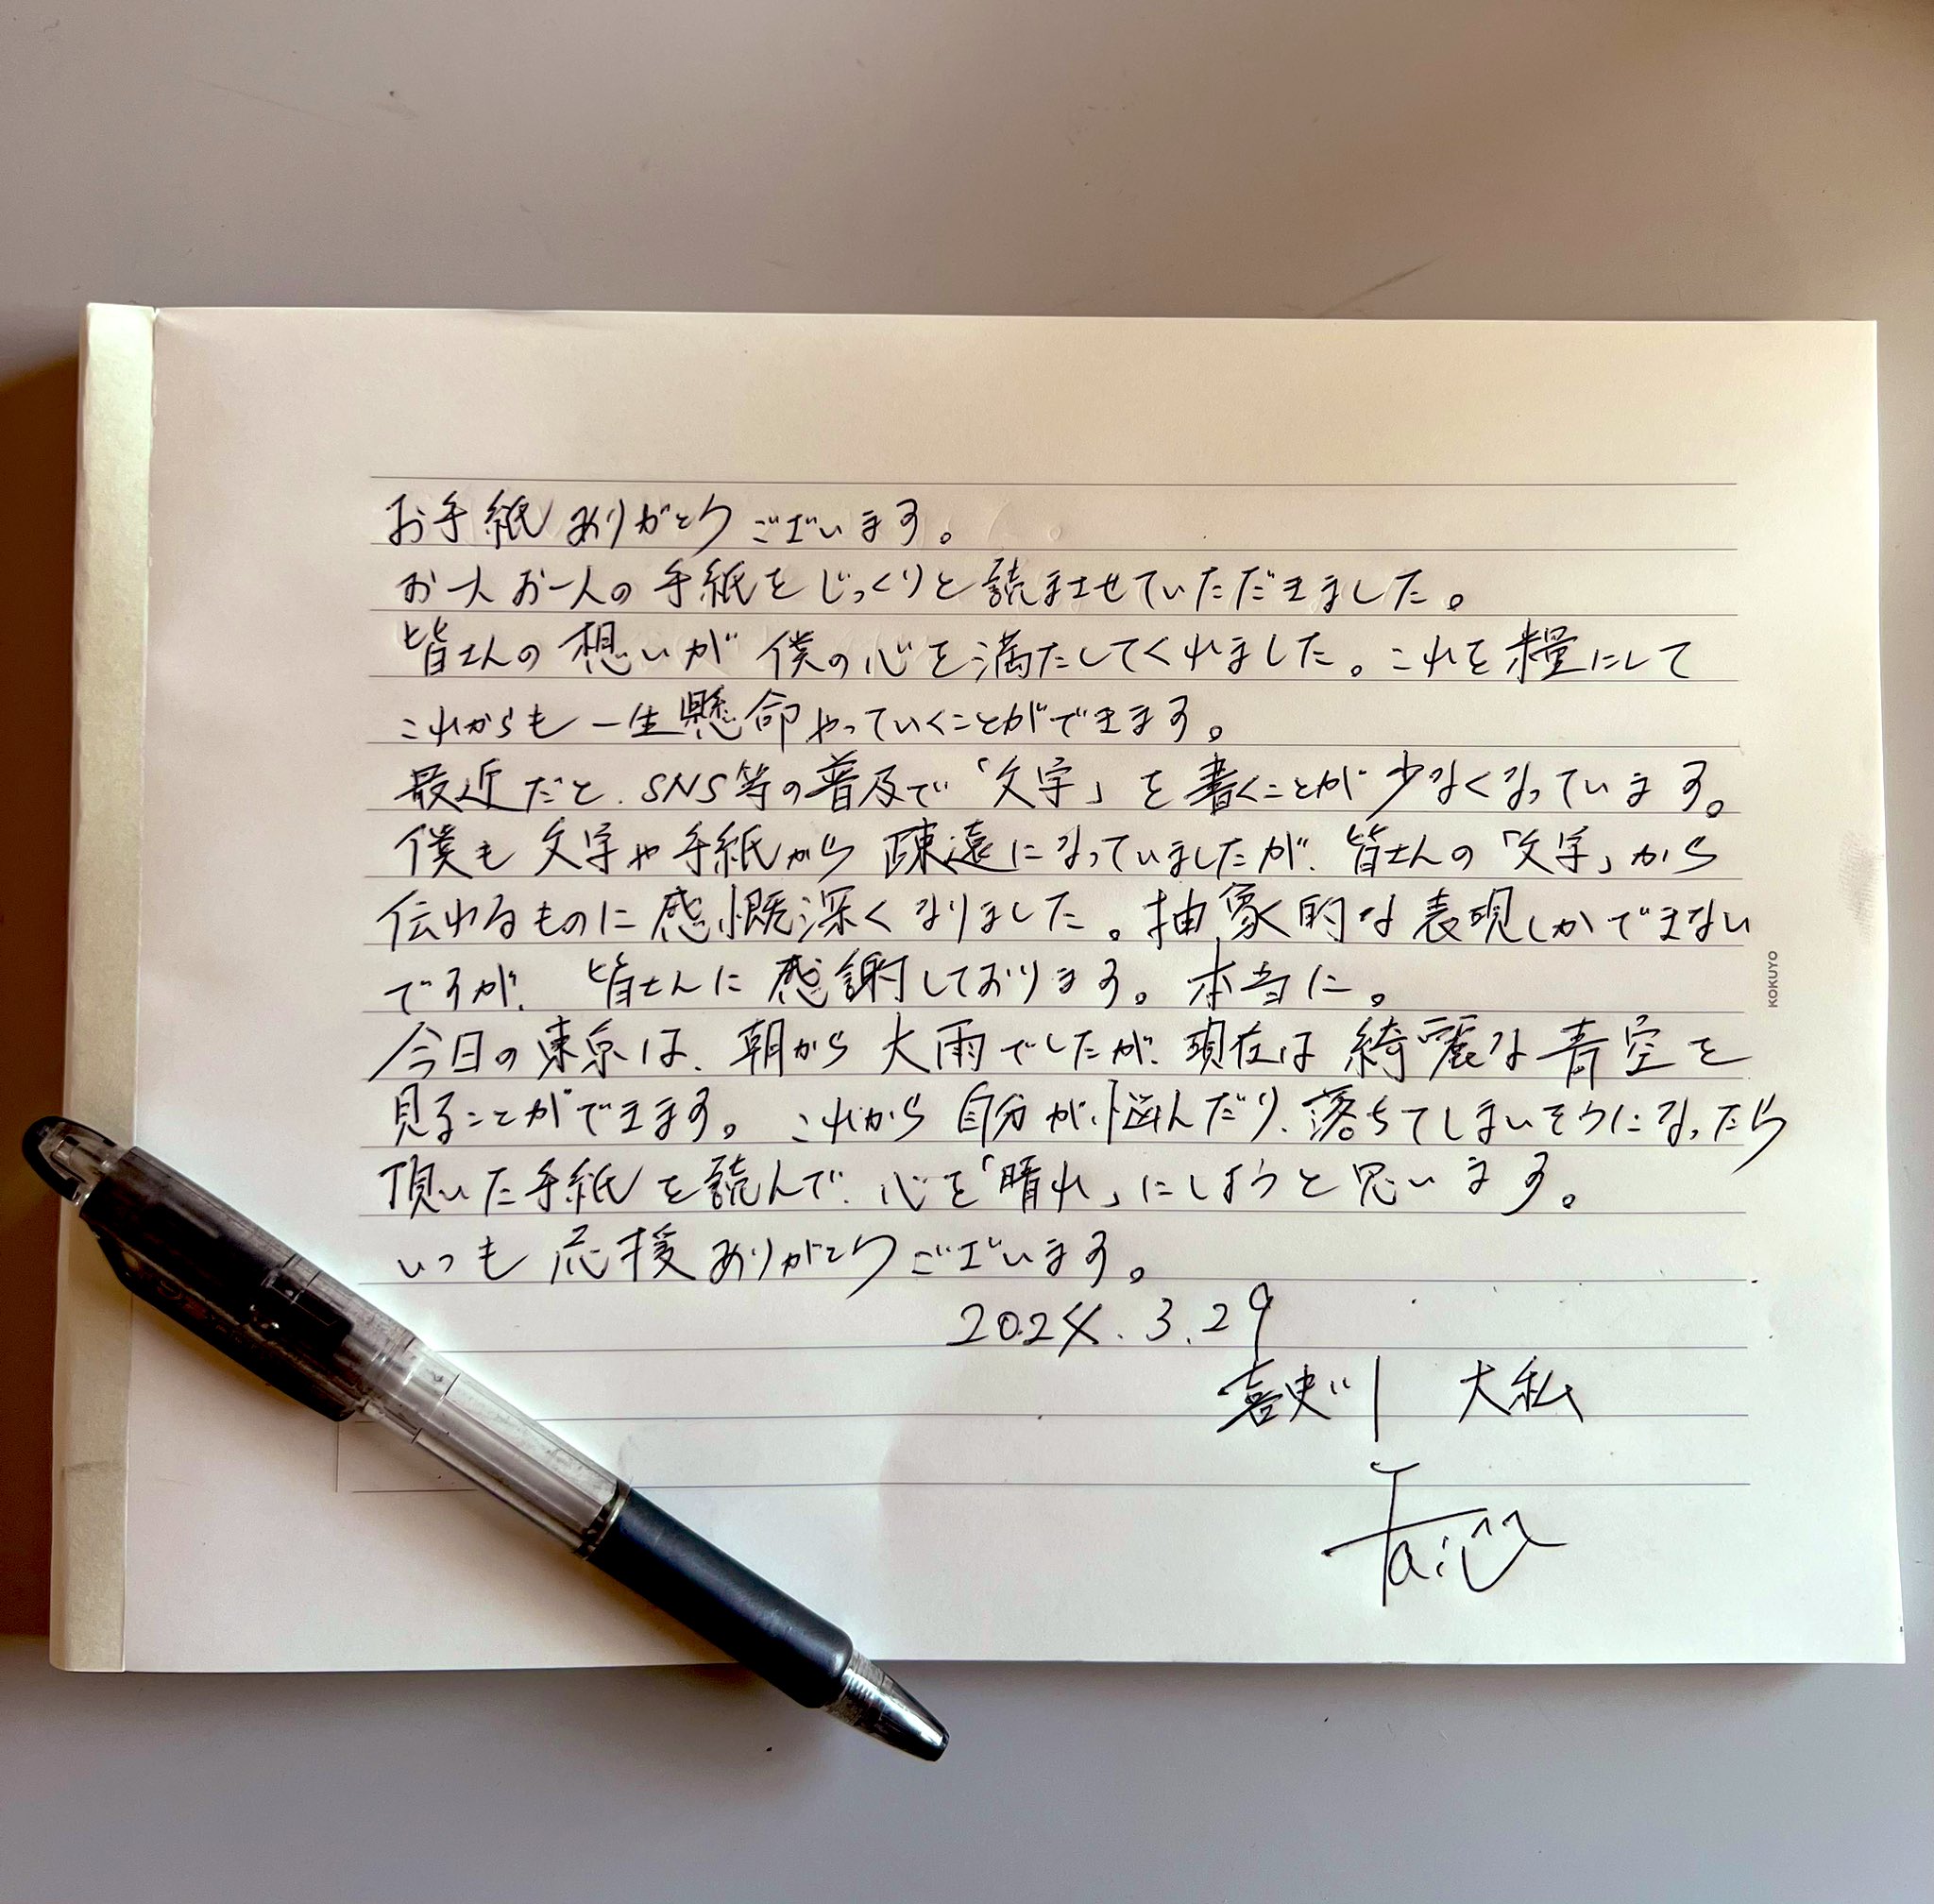 お手紙ありがとうございます。
お一人お一人の手紙をじっくりと読ませていただきました。
皆さんの想いが僕の心を満たしてくれました。これを糧にして
これからも一生懸命やっていくことができます。
最近だと、SNS等の普及で「文字」を書くことが少なくなっています。
僕も文字や手紙から疎遠になっていましたが、皆さんの「文字」から
伝わるものに感慨深くなりました。抽象的な表現しかできない
ですが、皆さんに感謝しております。本当に。
今日の東京は、朝から大雨でしたが、現在は綺麗な青空を
見ることができます。これから自分が悩んだり、落ちてしまいそうになったら
頂いた手紙を読んで、心を「晴れ」にしようと思います。
いつも応援ありがとうございます。
2024.3.29
大私
KOKUYO